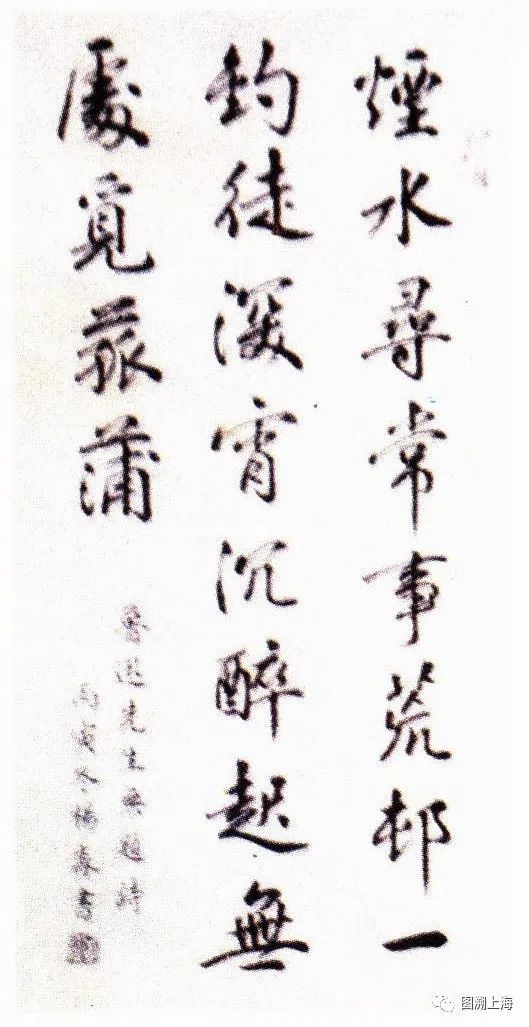 煙水尋常事荒邨一
釣徒深宵沉醉起無
處覓菰蒲
魯迅先生無題詩
丙寅冬楊
書
图溯上海